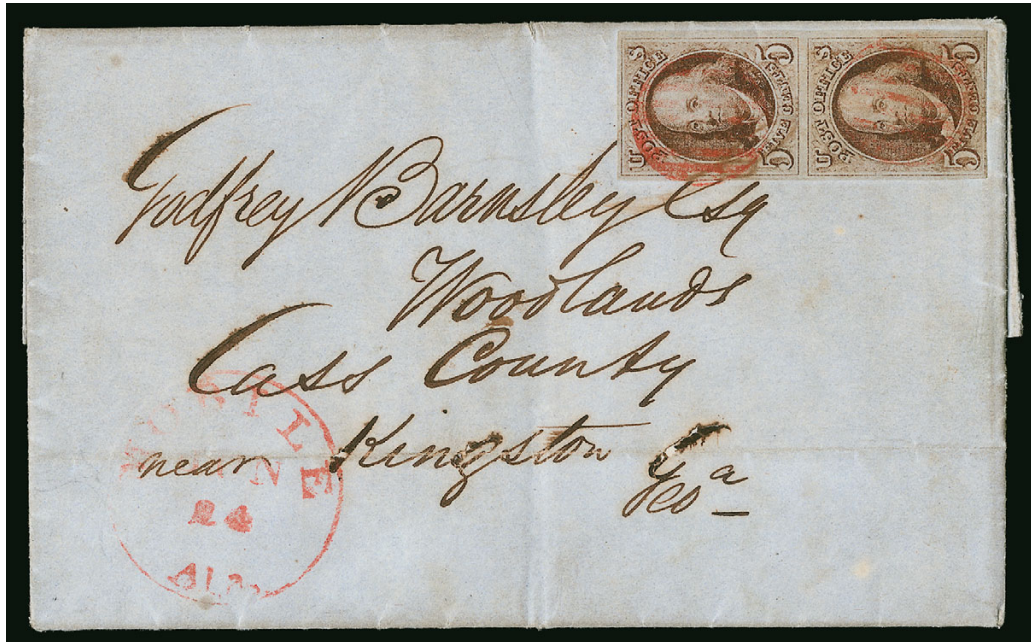 U POST OFFICE S
5 FIVE CENTS 5
U POST OFFICE S
5 FIVE CENTS 5
Godfrey Barnsley Esq
Woodlands
Cass County
near Kingston Geoª
MOBILE
24